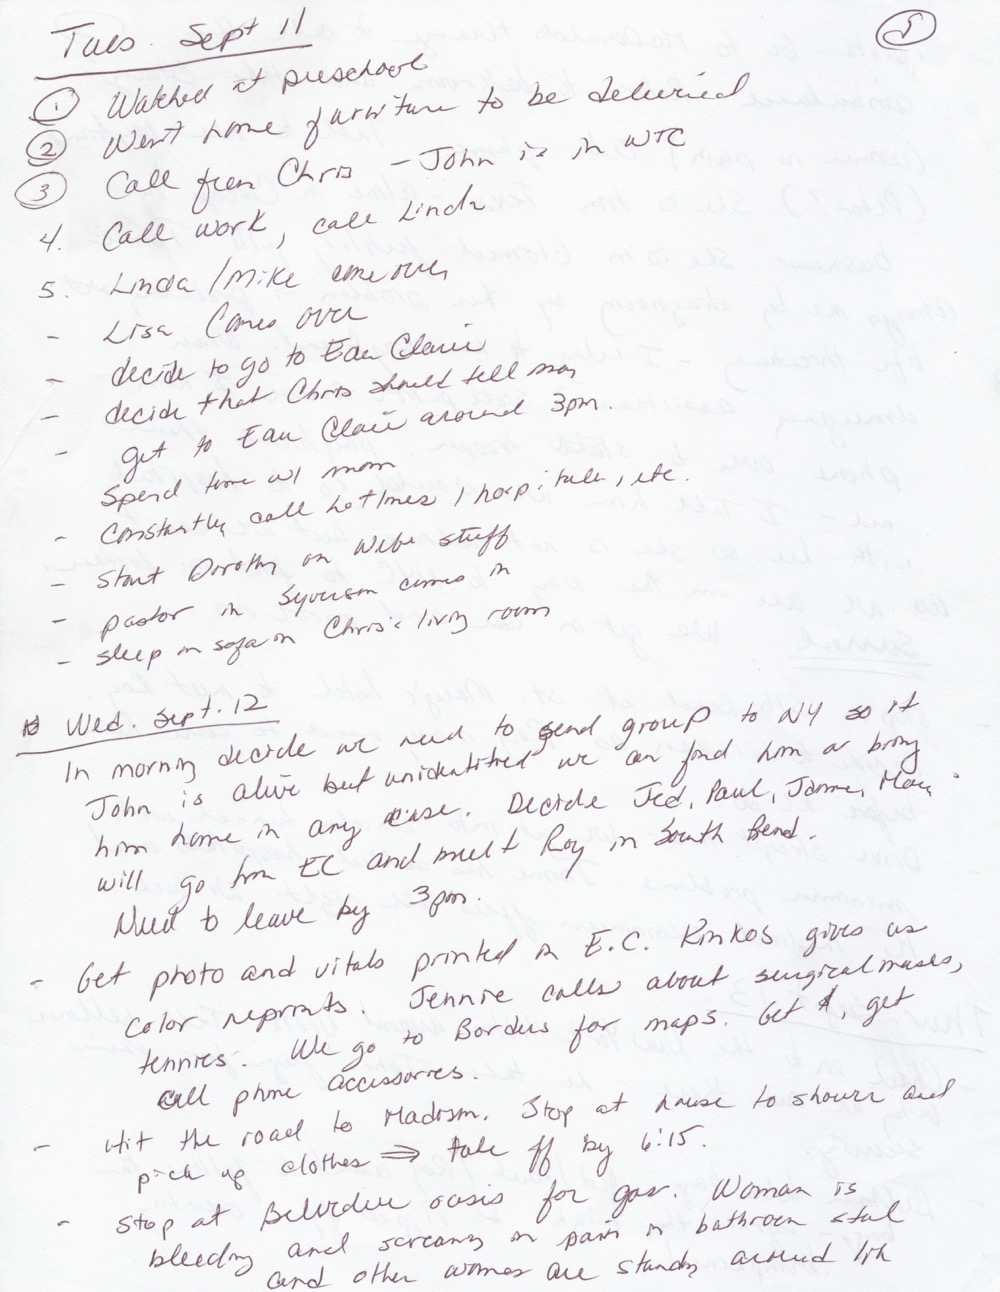 Tues. Sept 11
① Watched at preschool
② Went home furniture to be delivered
③ Call from Chris - John is in WTC
4. Call work, call Linda
5. Linda / Mike come over
- Lisa comes over
- decide to go to Eau Claire
- decide that Chris should tell mom
- get to Eau Claire around 3pm.
spend time w/ mom
- Constantly call hotlines, hospitals, etc.
- Start Dorothy on Webe stuff
- pastor in comes in
- sleep on sofa in Chris's living room
Wed. Sept. 12
In morning decide we need to send group to NY so if
John is alive but unidentified we can find him or bring
him home in any case. Decide Jed, Paul, Jamie, Mary
will go from EC and meet Roy in South Bend.
Need to leave by 3pm.
- Get photo and vitals printed in E.C. Kinkos gives us
color reprints. Jennie calls about surgical masks,
tennies. We go to Borders for maps. Get $, get
cell phone accessories.
- Hit the road to Madison. Stop at house to shower and
pick up clothes ⇒ take off by 6:15.
- Stop at Belvedere oasis for gas. Woman is
bleeding and screaming in pain in bathroom stall
and other women are standing around